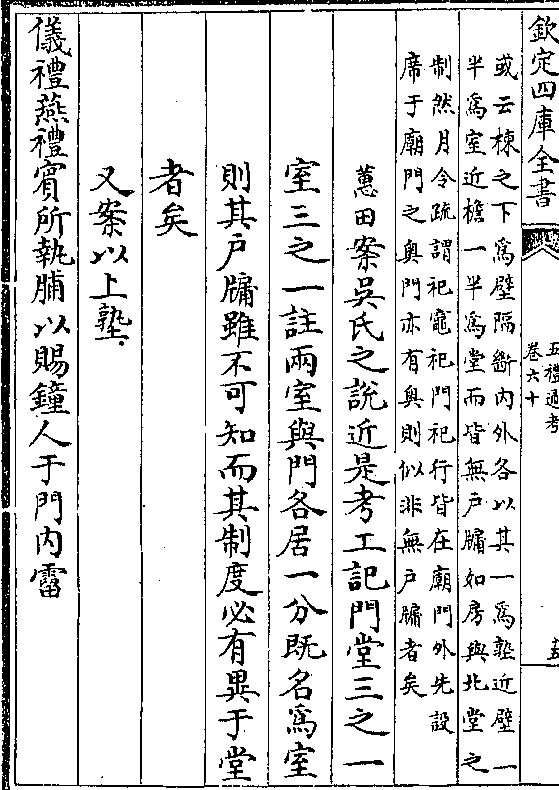 欽定四庫全書
五禮通考
卷六十
或云棟之下為壁隔斷内外各以其一為塾近壁一
半為室近檐一半為堂而皆無戸牖如房與北堂之
制然月令疏謂祀竈祀門祀行皆在廟門外先設
席于廟門之奥門亦有奥則似非無戸牖者矣
蕙田案吳氏之說近是考工記門堂三之一
室三之一註兩室與門各居一分既名為室
則其戸牖雖不可知而其制度必有異于堂
者矣
又案以上塾
儀禮燕禮賓所執脯以賜鐘人于門内霤